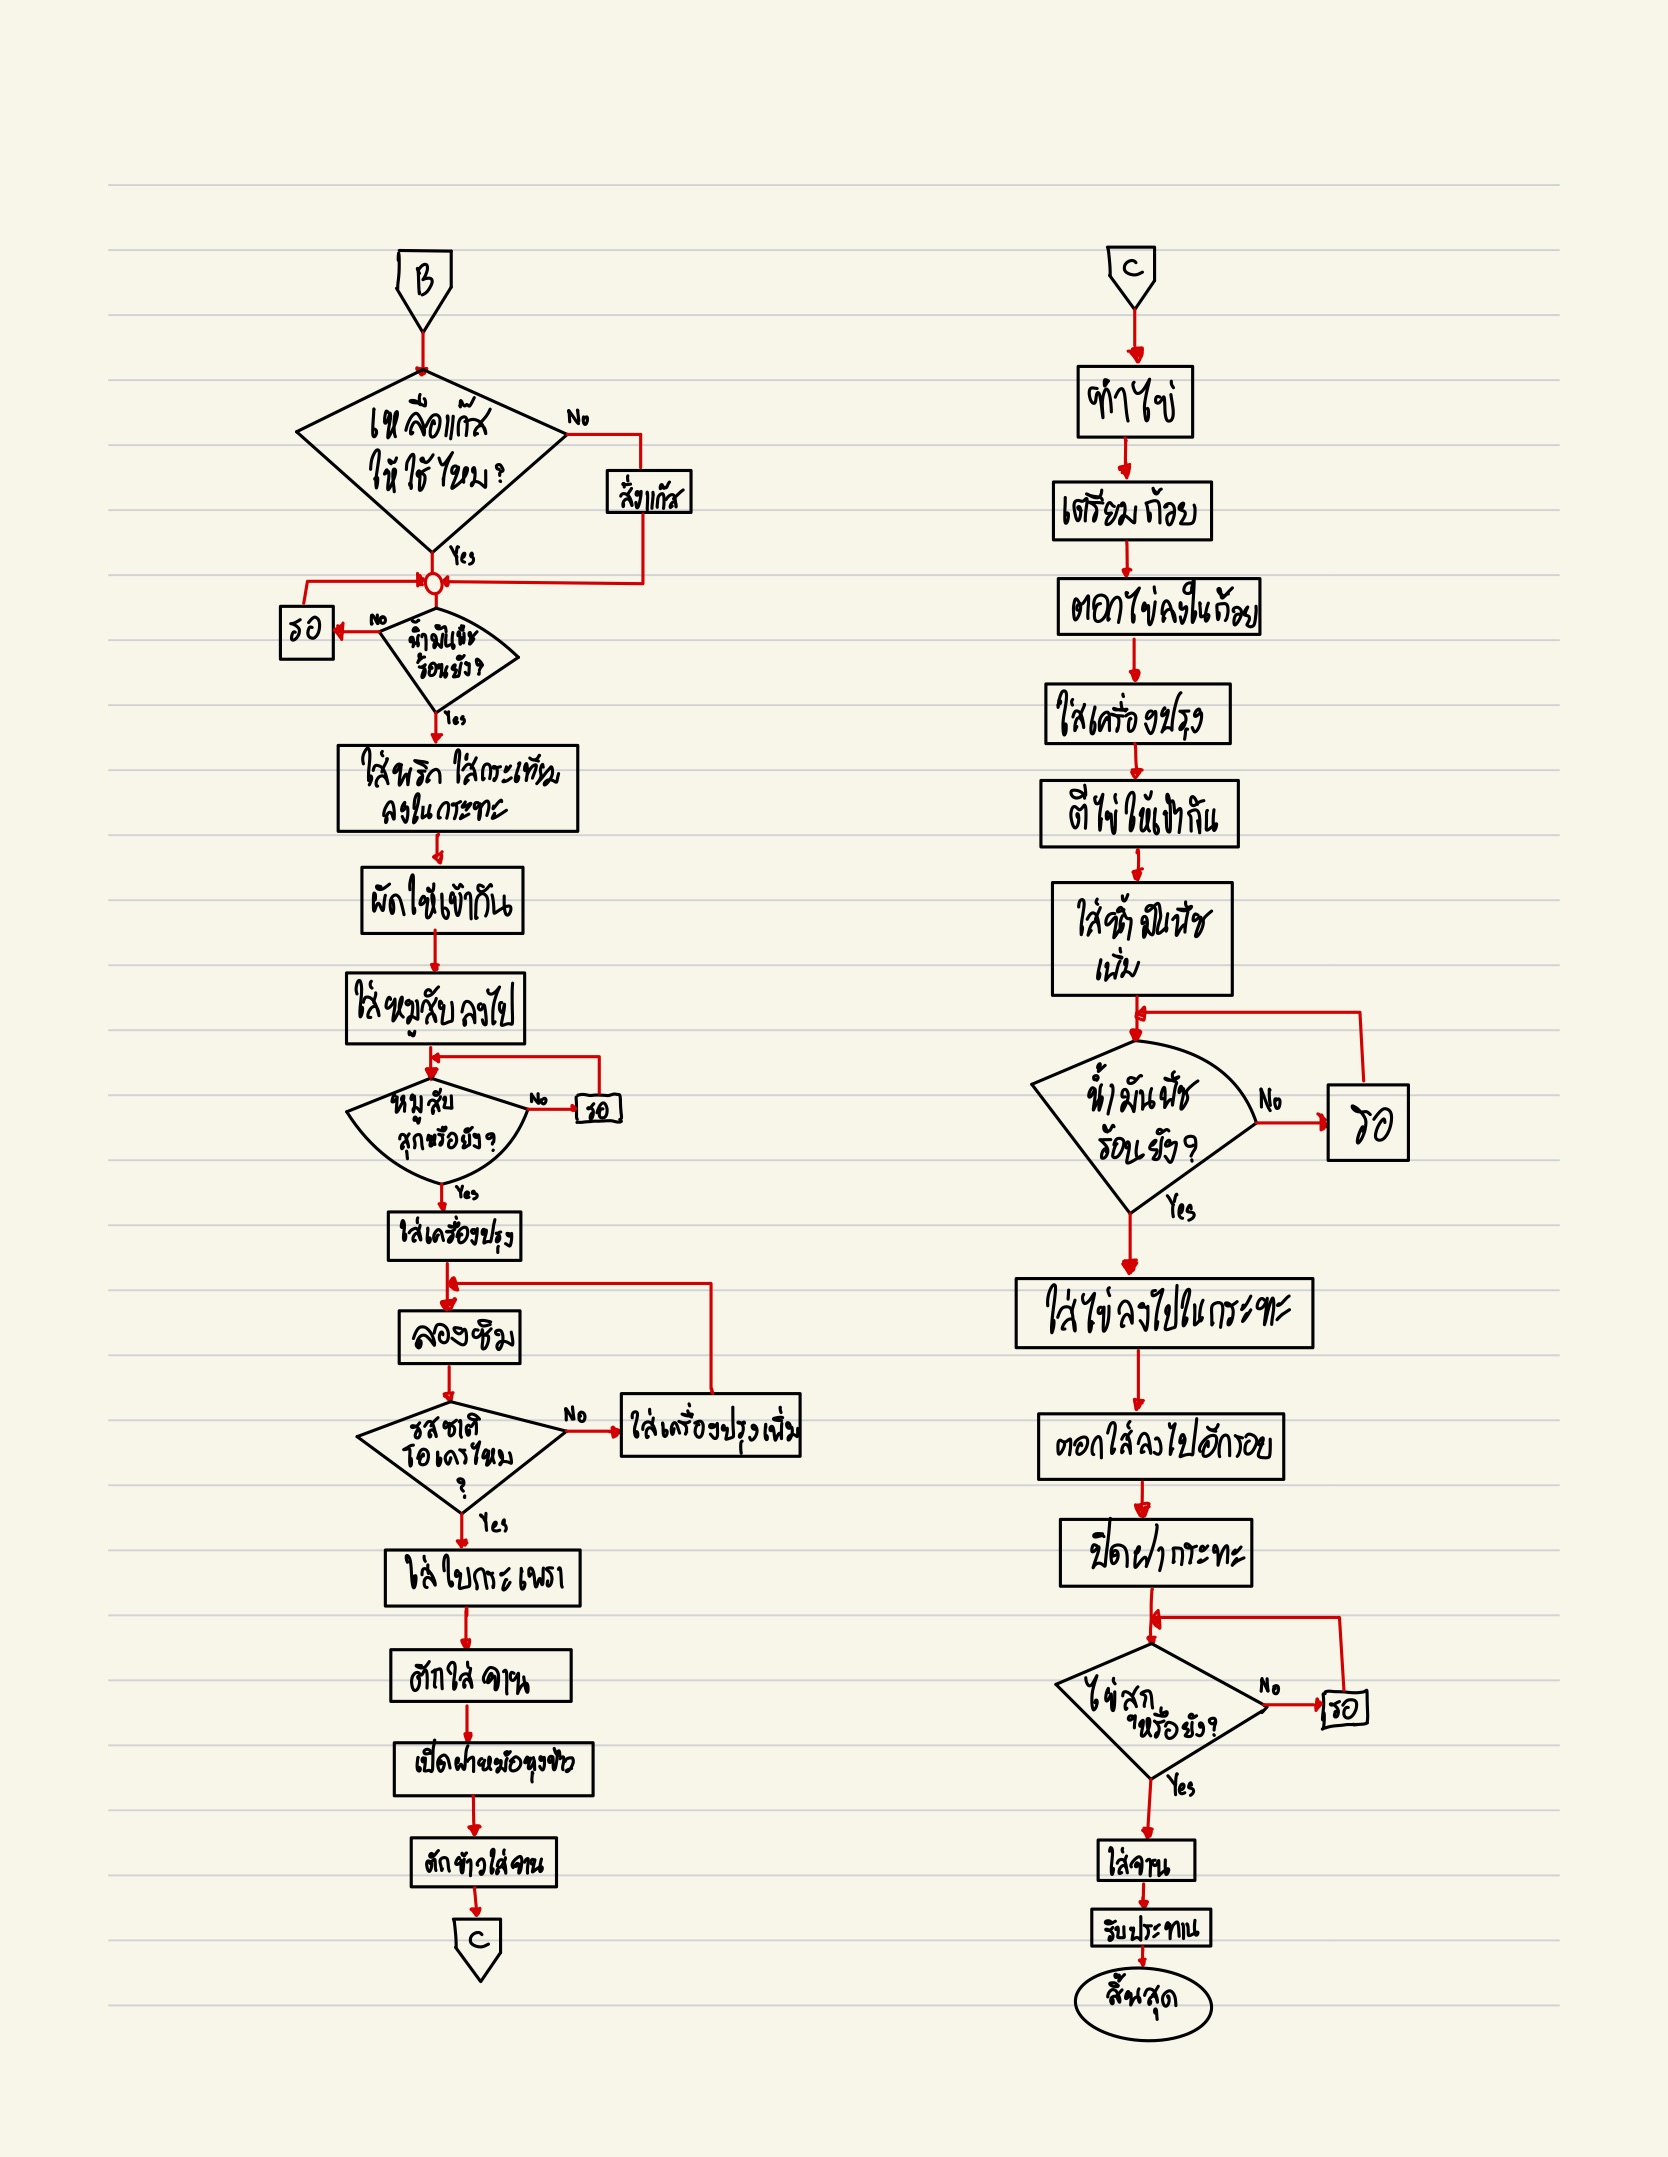 B
เหลือแก๊ส
ให้ใช้ไหม?
No
สั่งแก๊ส
Yes
รอ
No
น้ำมันพืช
ร้อนยัง?
Yes
ใส่พริก ใส่กระเทียม
ลงในกระทะ
ผัดให้เข้ากัน
ใส่หมูสับลงไป
หมูสับ
สุกหรือยัง?
No
รอ
Yes
ใส่เครื่องปรุง
ลองชิม
รสชาติ
โอเครไหม
?
No
ใส่เครื่องปรุงเพิ่ม
Yes
ใส่ใบกระเพรา
ตักใส่จาน
เปิดฝาหม้อหุงข้าว
ตักข้าวใส่จาน
C
C
ทำไข่
เตรียมถ้วย
ตอกไข่ลงในถ้วย
ใส่เครื่องปรุง
ตีไข่ให้เข้ากัน
ใส่น้ำมันพืช
เพิ่ม
น้ำมันพืช
ร้อนยัง?
No
รอ
Yes
ใส่ไข่ลงไปในกระทะ
ตอกใส่ลงไปอีกรอบ
ปิดฝากระทะ
ไข่สุก
หรือยัง?
No
รอ
Yes
ใส่จาน
รับประทาน
สิ้นสุด